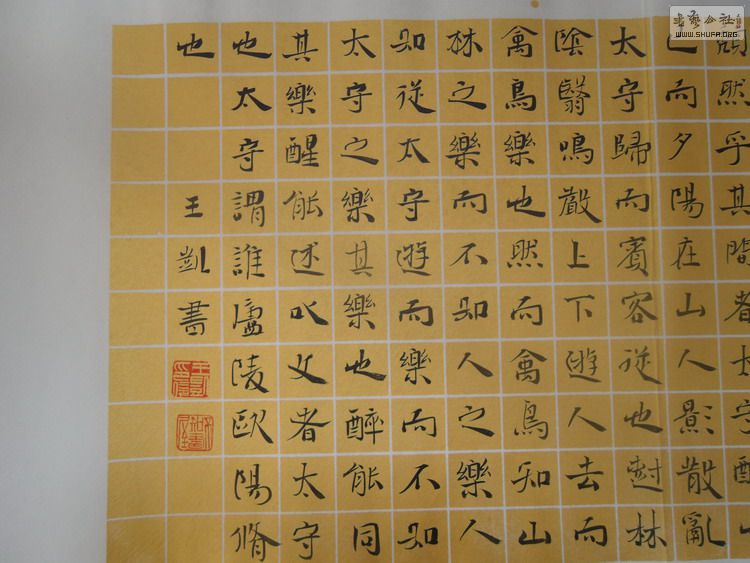 然乎其間者太守醉
已而夕陽在山人影散亂
太守歸而賓客從也樹林
陰翳鳴聲上下遊人去而
禽鳥樂也然而禽鳥知山
林之樂而不知人之樂人
知從太守遊而樂而不知
太守之樂其樂也醉能同
其樂醒能述以文者太守
也太守謂誰廬陵歐陽脩
也
王凱書
書藝公社
WWW.SHUFA.ORG